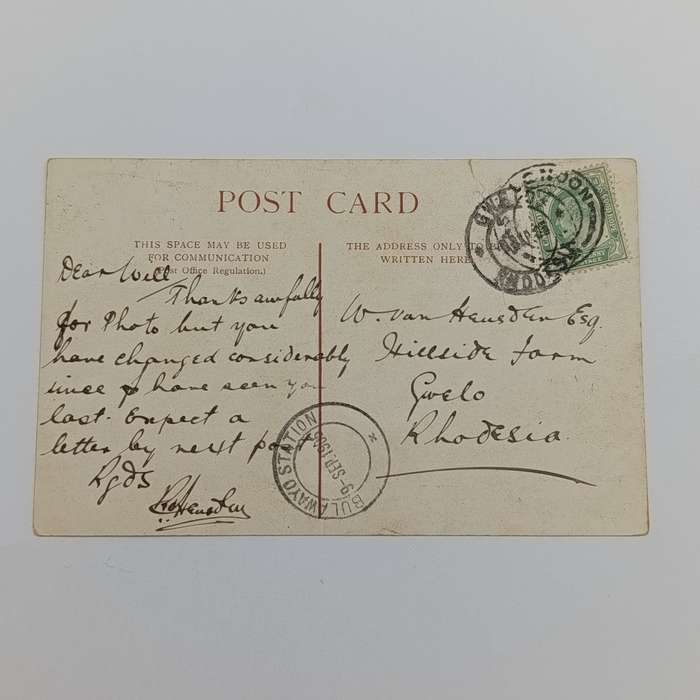 POST CARD
THIS SPACE MAY BE USED
FOR COMMUNICATION
(Post Office Regulation.)
THE ADDRESS ONLY TO BE
WRITTEN HERE
Dear Will
Thanks awfully
for Photo but you
have changed considerably
since I have seen you
last. Expect a
letter by next post
Rgds
W. van Heusden Esq.
Hillside Farm
Gwelo
Rhodesia
BULAWAYO STATION
9 SEP 1906
LONDON